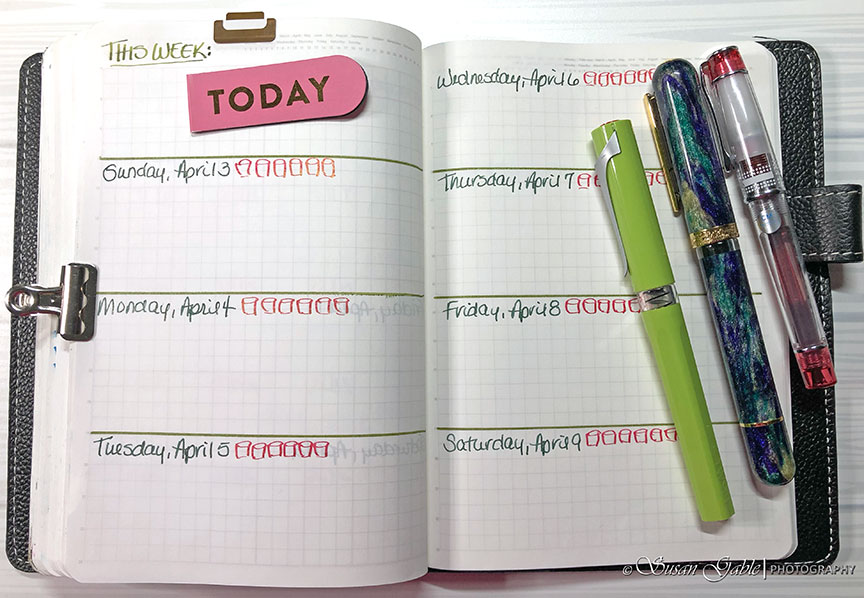 THIS WEEK:
TODAY
Sunday, April 3
Monday, April 4
Tuesday, April 5
Wednesday, April 6
Thursday, April 7
Friday, April 8
Saturday, April 9
© Susan Gable | PHOTOGRAPHY